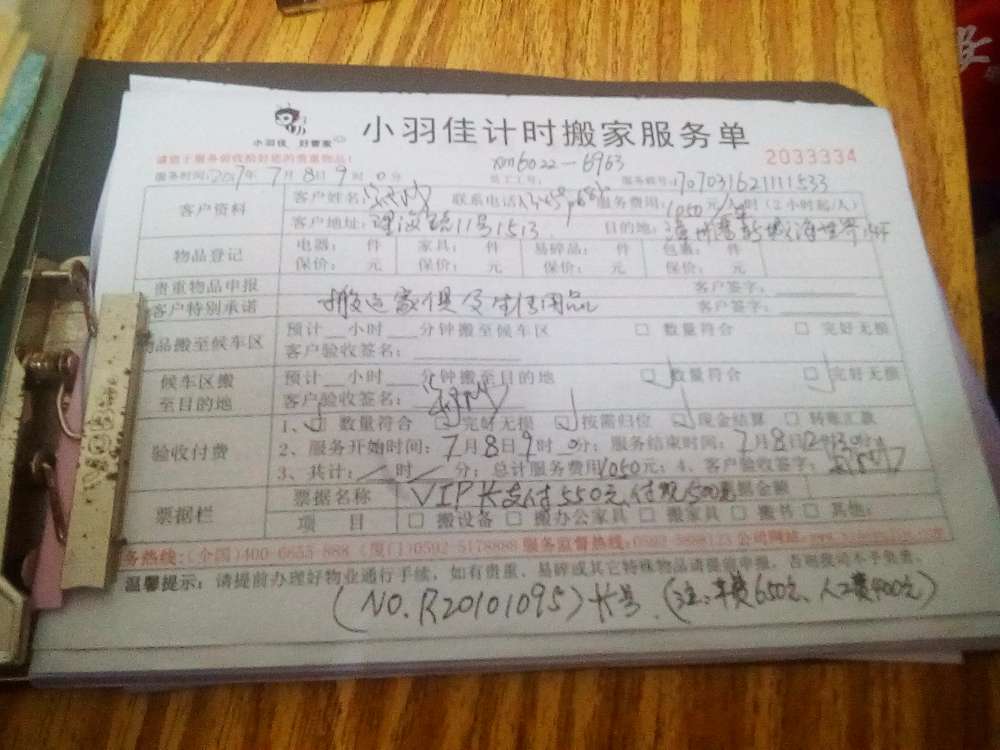 小羽佳 好管家
小羽佳计时搬家服务单
xm6022-6963
2033334
请您于服务前收拾好您的贵重物品!
服务时间:2017年7月8日9时0分 员工工号: 服务账号:1707031621111533
客户资料
客户姓名: 联系电话: 服务费用:1050元/ 时(2小时起/人)
客户地址: 11号1513 目的地:
物品登记
电器: 件 家具: 件 易碎品: 件 包裹: 件
保价: 元 保价: 元 保价: 元 保价: 元
贵重物品申报 客户签字:
客户特别承诺 搬运家俱及生活用品 客户签字:
物品搬至候车区
预计__小时___分钟搬至候车区 □ 数量符合 □ 完好无损
客户验收签名:
候车区搬至目的地
预计__小时___分钟搬至目的地 □ 数量符合 □ 完好无损
客户验收签名:
验收付费
1、□ 数量符合 □ 完好无损 □ 按需归位 □ 现金结算 □ 转账汇款
2、服务开始时间:7月8日9时0分;服务结束时间:7月8日
3、共计: 时 分;总计服务费用1050元;4、客户验收签字:
票据栏
票据名称 VIP卡支付550元 付现500元 票据金额
项 目 □ 搬设备 □ 搬办公家具 □ 搬家具 □ 搬书 □ 其他:
服务热线:(全国)400-6655-888 (厦门)0592-5178888 服务监督热线:0592-5898123 公司网站:
温馨提示:请提前办理好物业通行手续,如有贵重、易碎或其它特殊物品请提前申报,否则我司不予负责。
(NO.R20101095)卡号 (注:车费650元、人工费400元)